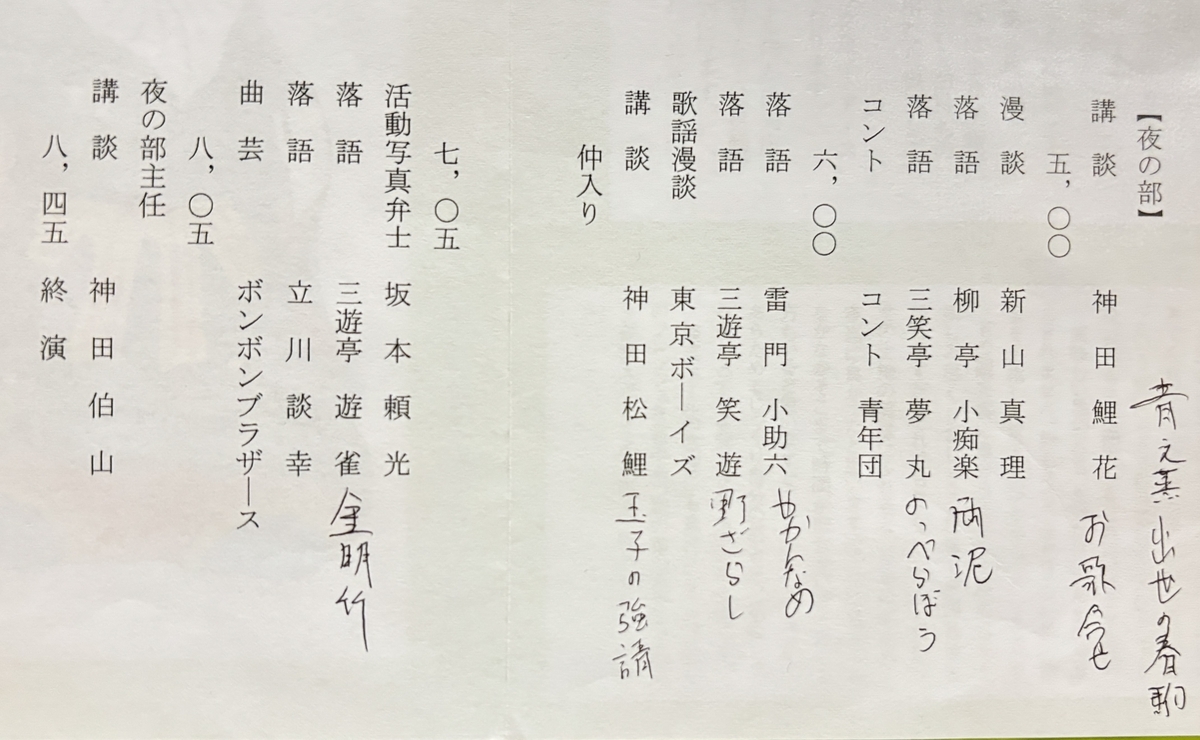 青之丞 出世の春駒
【夜の部】
講談 神田鯉花 お歌合せ
五,〇〇
漫談 新山真理
落語 柳亭小痴楽 両泥
落語 三笑亭夢丸 のっぺらぼう
コント コント青年団
六,〇〇
落語 雷門小助六 やかんなめ
落語 三遊亭笑遊 野ざらし
歌謡漫談 東京ボーイズ
講談 神田松鯉 玉子の強請
仲入り
七,〇五
活動写真弁士 坂本頼光
落語 三遊亭遊雀 金明竹
落語 立川談幸
曲芸 ボンボンブラザース
八,〇五
夜の部主任
講談 神田伯山
八,四五 終演